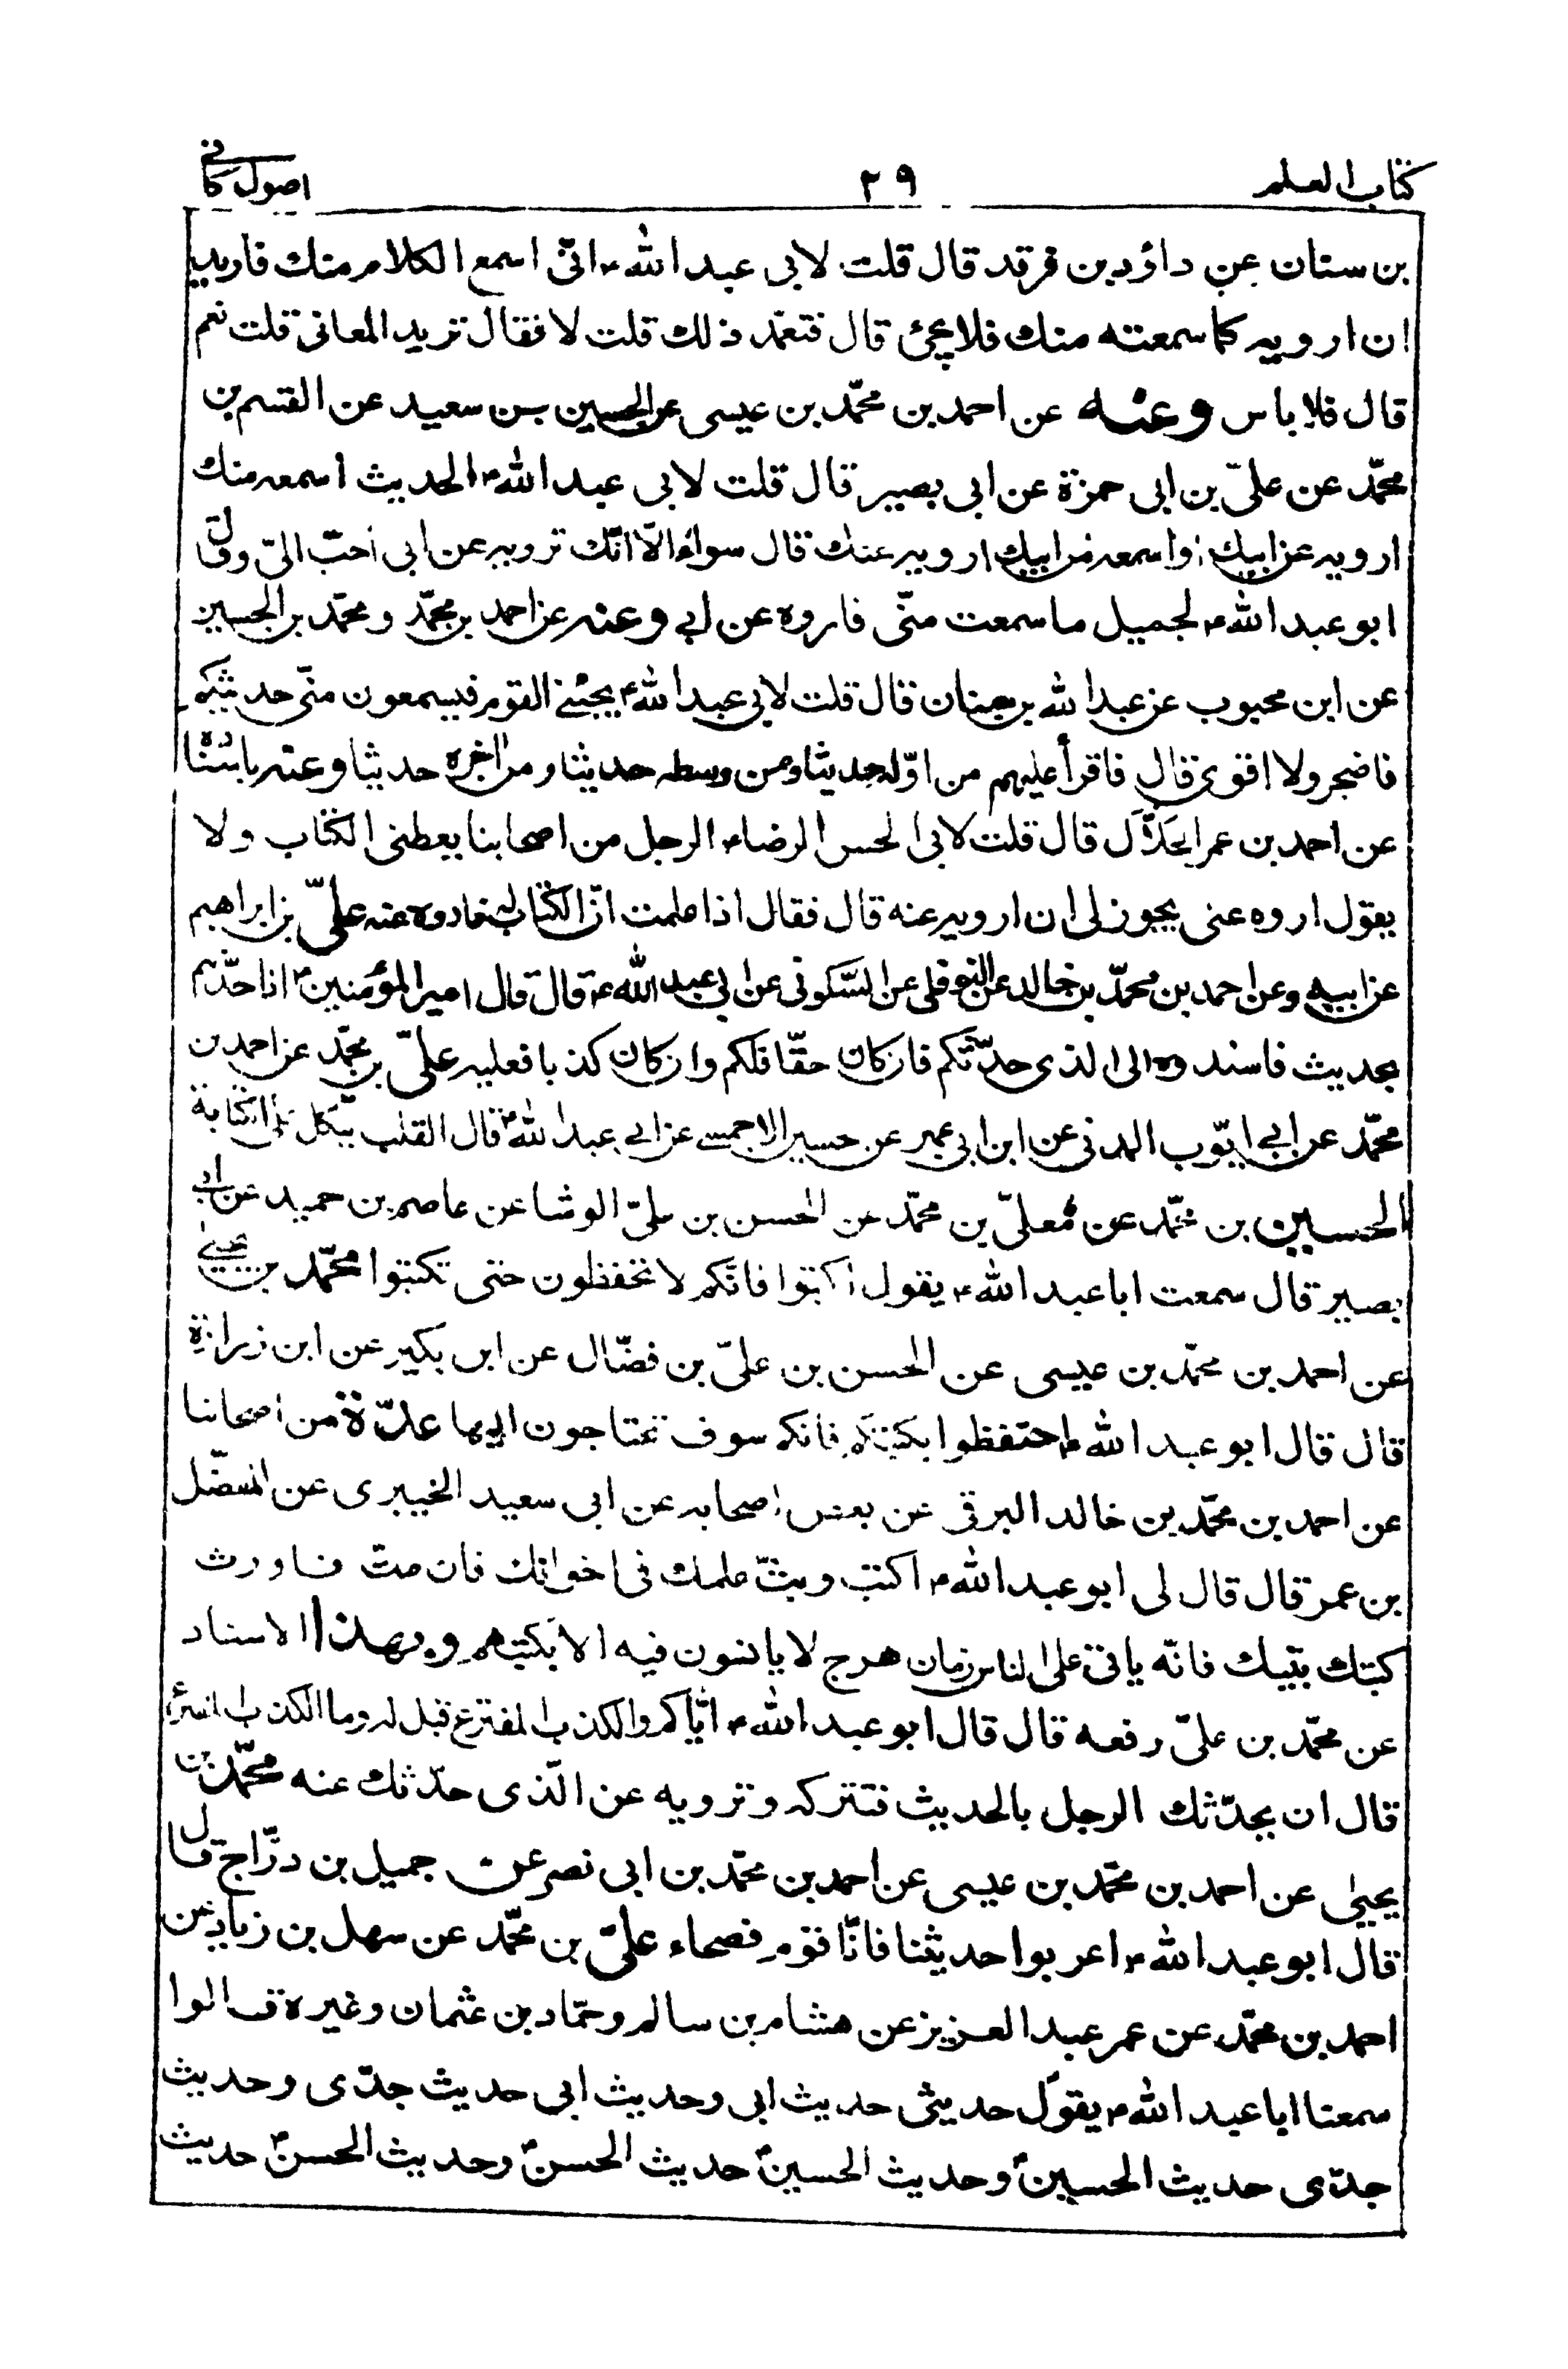 كتاب العلم ٢٩ اصول كافى
بن سنان عن داؤد بن فرقد قال قلت لابى عبد الله ؑ انّى اسمع الكلام منك فاريد
ان ارويه كما سمعته منك فلا يجئ قال فتعمّد ذلك قلت لا فقال تريد المعانى قلت نعم
قال فلا باس وعنه عن احمد بن محمّد بن عيسى عن الحسين بن سعيد عن القسم بن
محمّد عن علىّ بن ابى حمزة عن ابى بصير قال قلت لابى عبد الله ؑ الحديث اسمعه منك
ارويه عن ابيك او اسمعه من ابيك ارويه عنك قال سواء الّا انّك ترويه عن ابى احبّ الىّ وقال
ابو عبد الله ؑ لجميل ما سمعت منّى فاروه عن ابى وعنه عن احمد بن محمّد ومحمّد بن الحسين
عن ابن محبوب عن عبد الله بن سنان قال قلت لابى عبد الله ؑ يجيئنى القوم فيسمعون منّى حديثكم
فاضجر ولا اقوى قال فاقرأ عليهم من اوّله حديثا ومن وسطه حديثا ومن اخره حديثا وعنه باسناده
عن احمد بن عمر الحلّال قال قلت لابى الحسن الرضا ؑ الرجل من اصحابنا يعطنى الكتاب ولا
يقول اروه عنى يجوز لى ان ارويه عنه قال فقال اذا علمت انّ الكتاب له فاروه عنه علىّ بن ابراهيم
عن ابيه وعن احمد بن محمّد بن خالد عن النوفلى عن السّكونى عن ابى عبد الله ؑ قال قال امير المؤمنين ؑ اذا حدّثتم
بحديث فاسندوه الى الذى حدّثكم فان كان حقّا فلكم وان كان كذبا فعليه علىّ بن محمّد عن احمد بن
محمّد عن ابى ايّوب المدنى عن ابن ابى عمير عن حسين الاحمسى عن ابى عبد الله ؑ قال القلب يتّكل على الكتابة
الحسين بن محمّد عن معلىّ بن محمّد عن الحسن بن علىّ الوشا عن عاصم بن حميد عن ابى
بصير قال سمعت ابا عبد الله ؑ يقول اكتبوا فانّكم لا تحفظون حتى تكتبوا محمّد بن يحيىٰ
عن احمد بن محمّد بن عيسى عن الحسن بن علىّ بن فضّال عن ابن بكير عن ابن زرارة
قال قال ابو عبد الله ؑ احتفظوا بكتبكم فانكم سوف تحتاجون اليها عدّة من اصحابنا
عن احمد بن محمّد بن خالد البرقى عن بعض اصحابه عن ابى سعيد الخيبرى عن المفضّل
بن عمر قال قال لى ابو عبد الله ؑ اكتب وبثّ علمك فى اخوانك فان متّ فاورث
كتبك بنيك فانّه ياتى على الناس زمان هرج لا يانسون فيه الا بكتبهم وبهذا الاسناد
عن محمّد بن علىّ رفعه قال قال ابو عبد الله ؑ ايّاكم والكذب المفترع قيل له وما الكذب المفترع
قال ان يحدّثك الرجل بالحديث فتتركه وترويه عن الّذى حدّثك عنه محمّد بن
يحيىٰ عن احمد بن محمّد بن عيسى عن احمد بن محمّد بن ابى نصر عن جميل بن درّاج قال
قال ابو عبد الله ؑ اعربوا حديثنا فانّا قوم فصحاء علىّ بن محمّد عن سهل بن زياد عن
احمد بن محمّد عن عمر عبد العزيز عن هشام بن سالم وحمّاد بن عثمان وغيره قالوا
سمعنا ابا عبد الله ؑ يقول حديثى حديث ابى وحديث ابى حديث جدّى وحديث
جدّى حديث الحسين ؑ وحديث الحسين ؑ حديث الحسن ؑ وحديث الحسن ؑ حديث